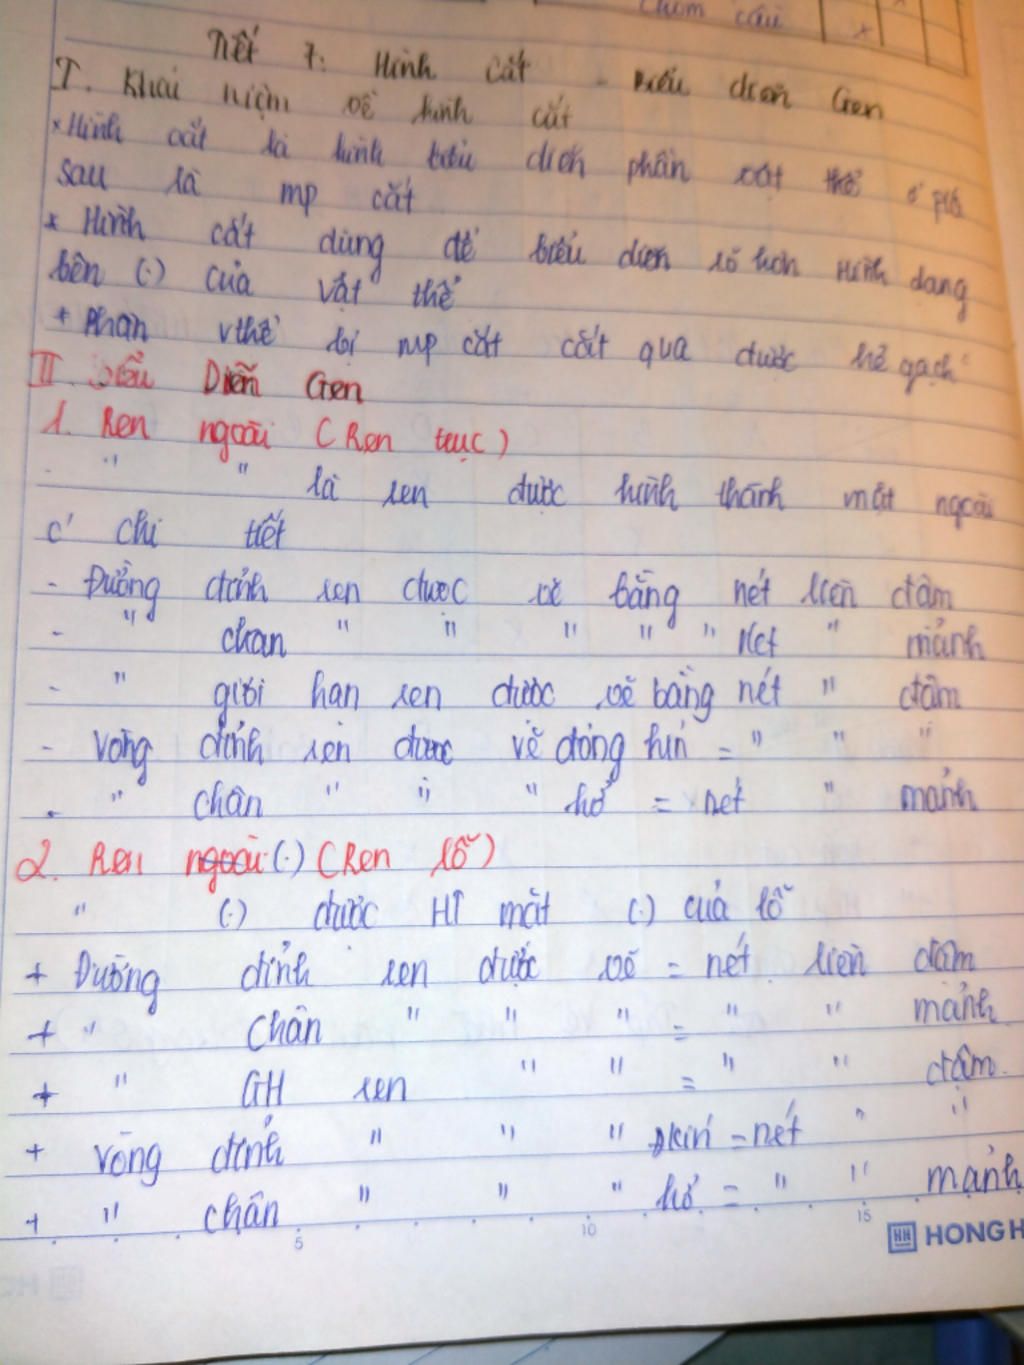 Chấm câu
Tiết 7: Hình Cắt - Biểu diễn Gen
I. Khái niệm về hình cắt
* Hình cắt là hình biểu diễn phần vật thể ở phía
sau là mp cắt
* Hình cắt dùng để biểu diễn rõ hơn Hình dạng
bên (.) của vật thể
+ Phần vthể bị mp cắt cắt qua được kẻ gạch
II. Biểu Diễn Gen
1. Ren ngoài (Ren trục)
- " " là ren được hình thành mặt ngoài
c' chi tiết
- Đường đỉnh ren được vẽ bằng nét liền đậm
- " chân " " " " " nét " mảnh
- " giới hạn ren được vẽ bằng nét " đậm
- Vòng đỉnh ren được vẽ đóng kín = " " "
- " chân " " " hở = nét " mảnh
2. Ren ngoài (.) (Ren lỗ)
" (.) được HT mặt (.) của lỗ
+ Đường đỉnh ren được vẽ = nét liền đậm
+ " Chân " " " = " " mảnh
+ " GH ren " " = " " đậm.
+ Vòng đỉnh " " " kín = nét " "
+ " chân " " " hở = " " mảnh
5 10 15
HH HONG H